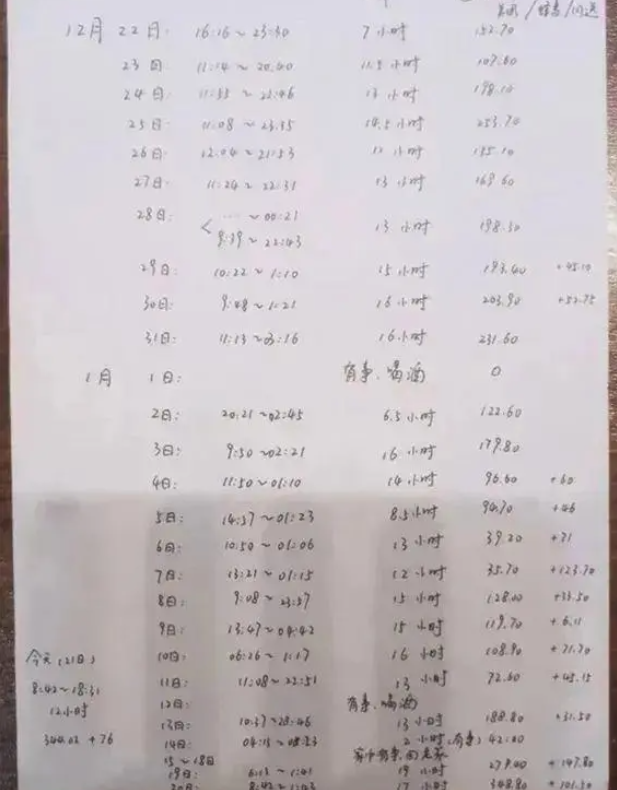 美团/蜂鸟/闪送
12月 22日: 16:16~23:30 7小时 152.70
23日: 11:14~20:40 11.5小时 107.60
24日: 11:35~22:46 13小时 198.10
25日: 11:08~23:35 14.5小时 253.70
26日: 12:04~21:53 11小时 135.10
27日: 11:24~22:31 13小时 169.60
28日: <  ... ~00:21
9:39~22:43 13小时 198.30
29日: 10:22~1:10 15小时 193.40 +45.10
30日: 9:08~1:21 16小时 203.90 +52.75
31日: 11:13~03:16 16小时 231.60
1月 1日: 有事、喝酒 0
2日: 20:21~02:45 6.5小时 122.60
3日: 9:50~02:21 16小时 179.80
4日: 11:50~01:10 14小时 96.60 +60
5日: 14:37~01:23 8.5小时 94.70 +46
6日: 10:50~01:06 13小时 39.20 +71
7日: 13:21~01:15 12小时 35.70 +123.70
8日: 9:08~23:57 15小时 128.00 +33.50
9日: 13:47~04:42 15小时 119.70 +6.11
10日: 06:26~1:17 16小时 108.90 +71.70
11日: 11:08~22:51 13小时 72.60 +45.15
12日: 有事、喝酒
13日: 10:37~23:46 13小时 188.80 +31.50
14日: 2小时(有事) 42.00
15~18日 家中有事,回老家
19日: 6:13~1:41 19小时 279.00 +147.80
20日: 8:42~1:43 17小时 348.80 +101.50
今天(21日)
8:42~18:31
12小时
344.02 +76